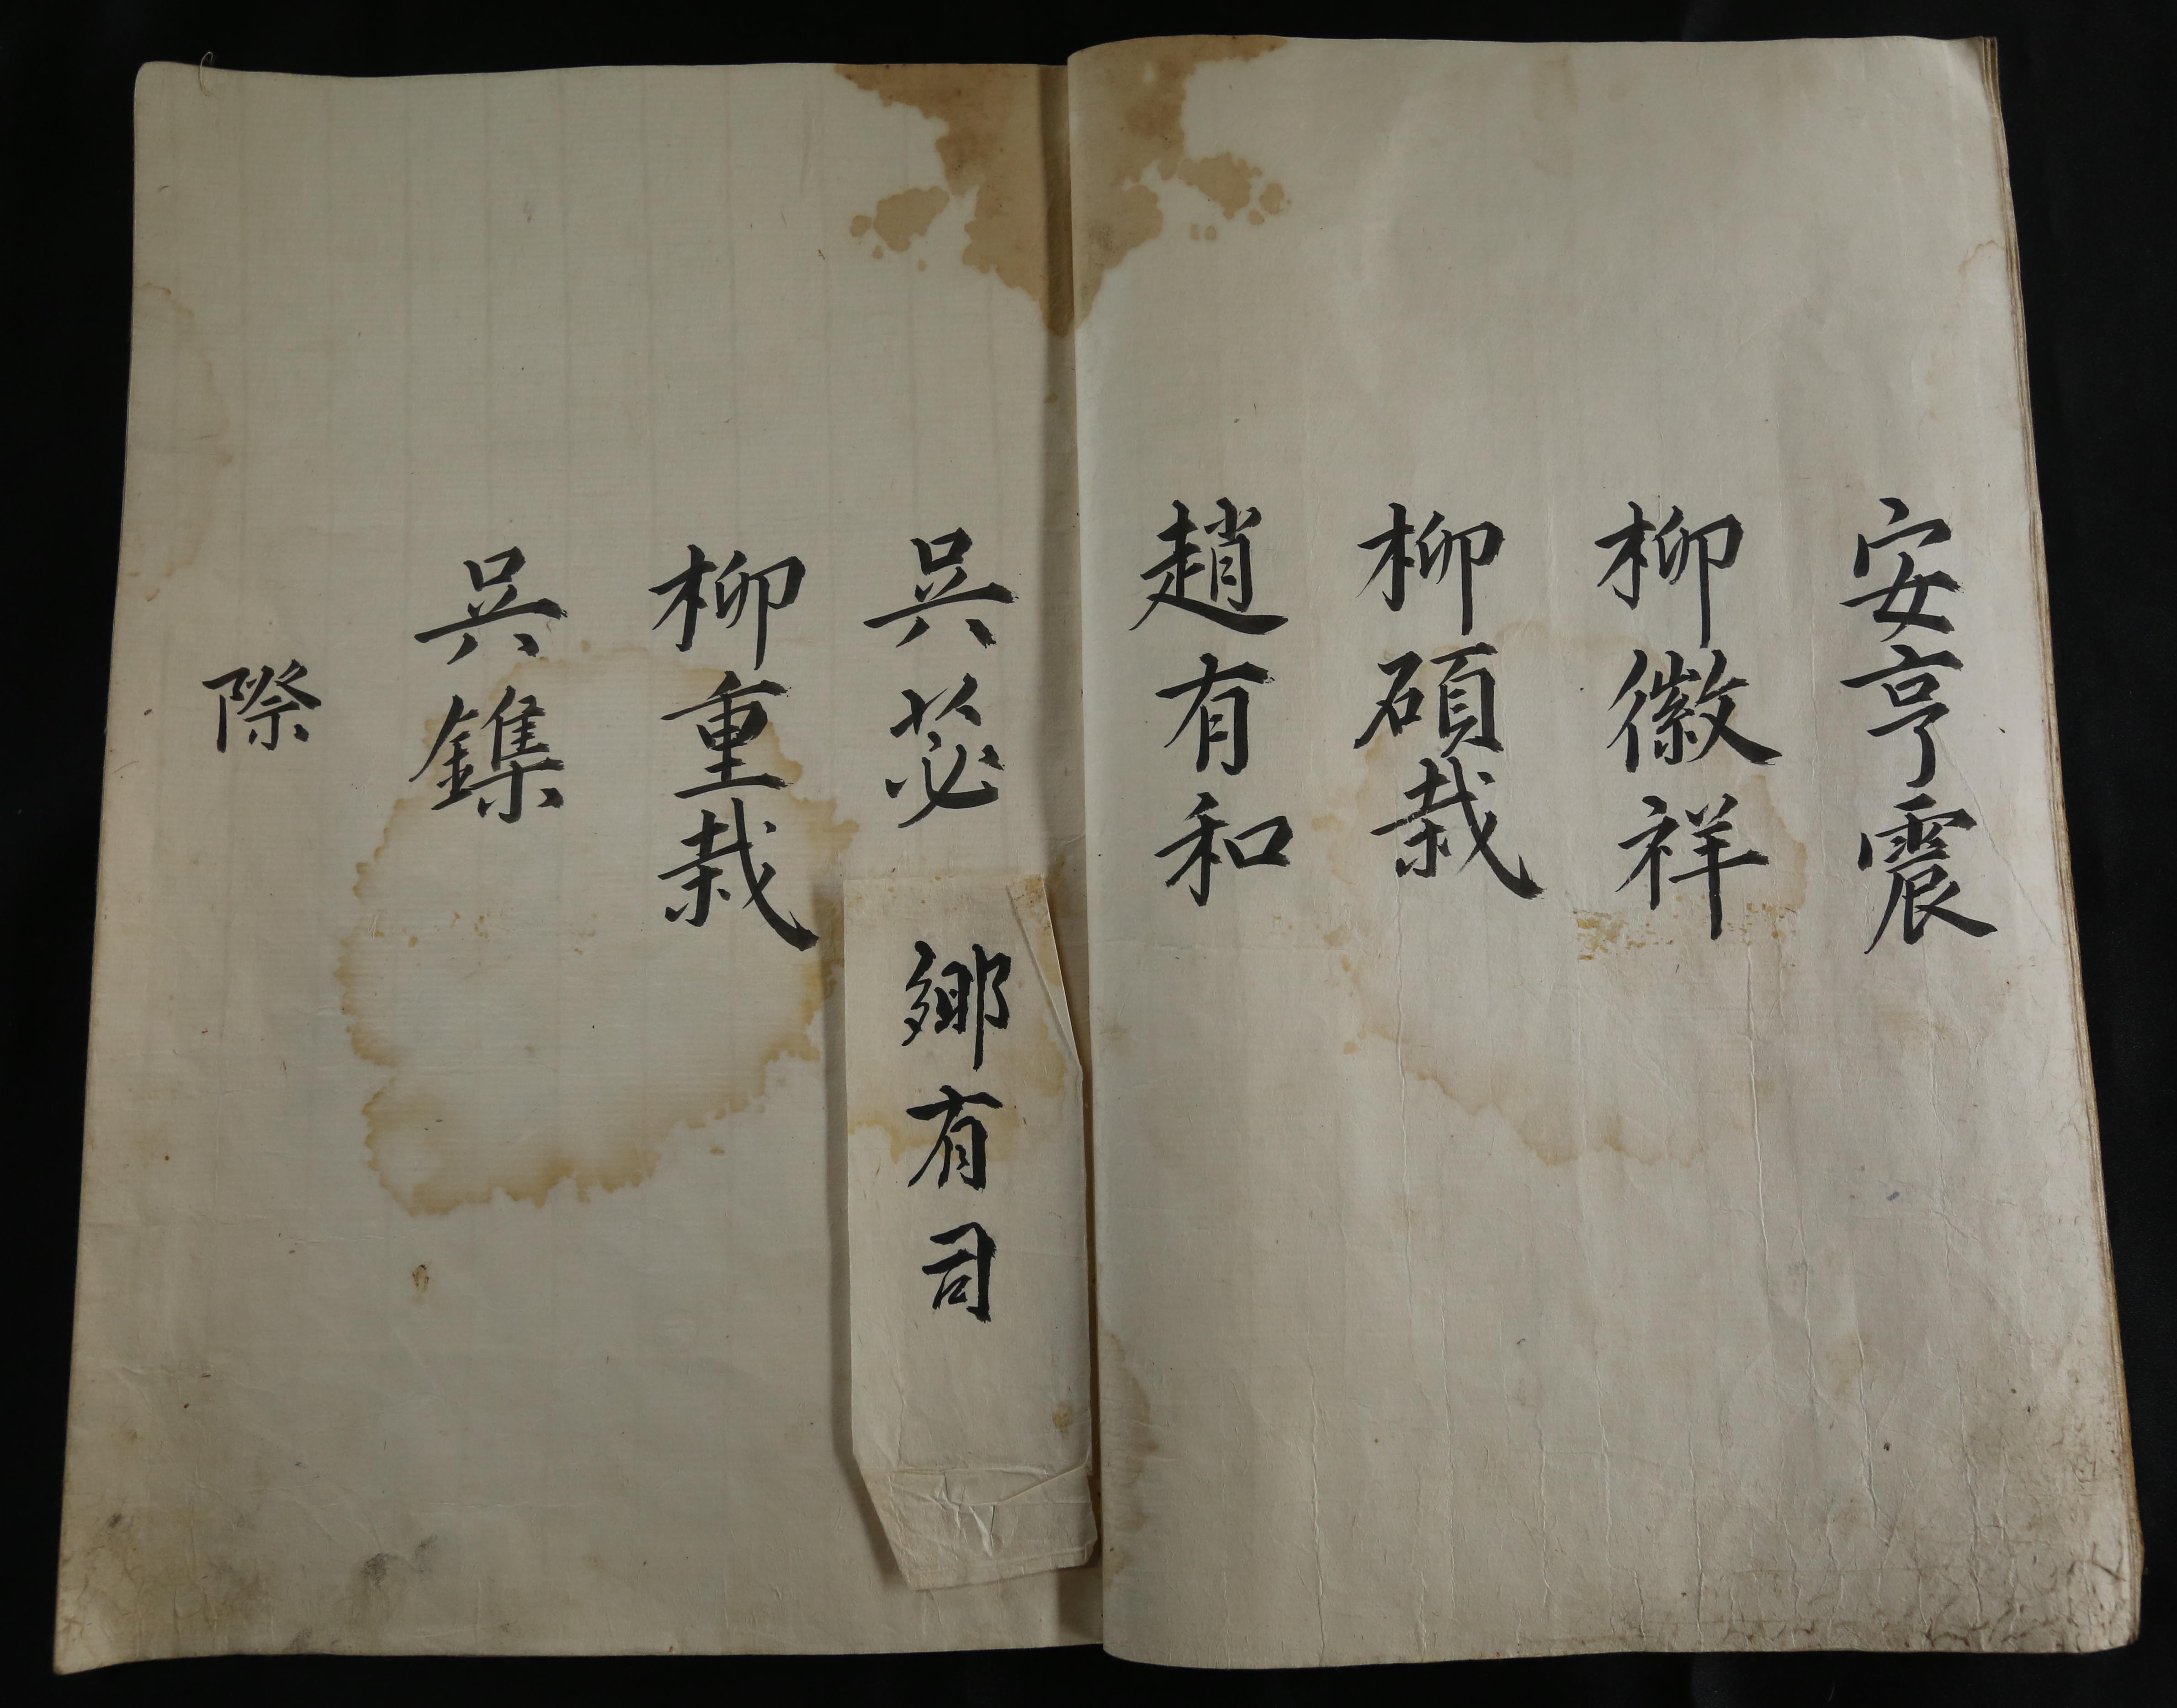 安亨震
柳徽祥
柳碩栽
趙有和
吳苾
鄕有司
柳重栽
吳鏶
際